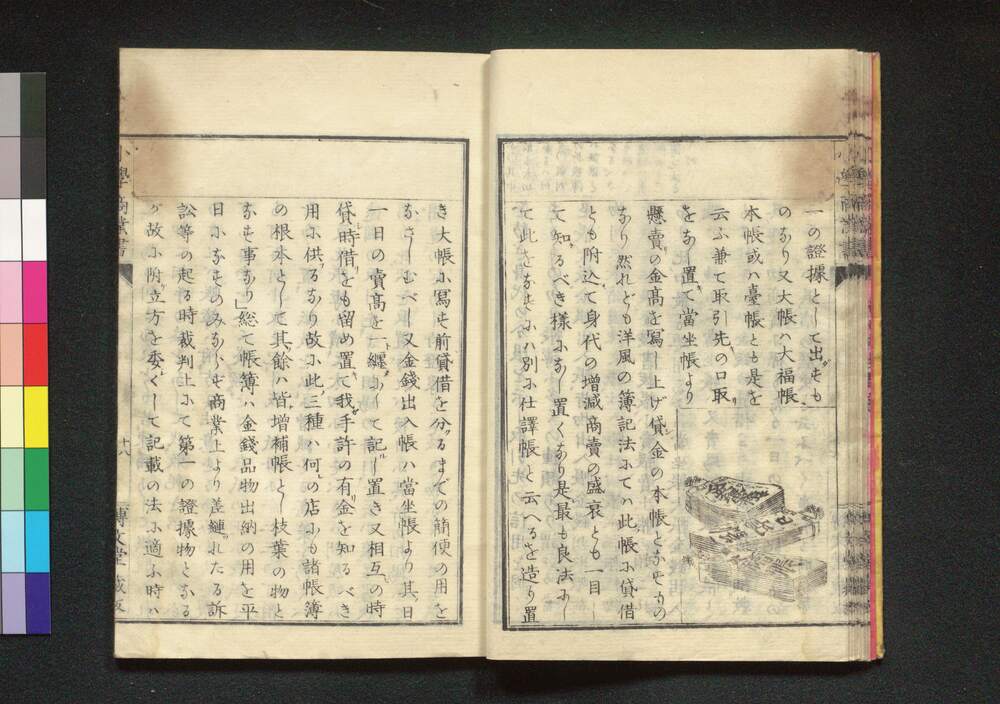 一の證據として出すも
のなり又大帳ハ大福帳
本帳或ハ臺帳とも是を
云ふ兼て取引先の口取
をなし置て當坐帳より
懸賣の金高を寫し上げ貸金の本帳となすもの
なり然れども洋風の簿記法にてハ此帳に貸借
とも附込て身代の増減商賣の盛衰とも一目し
て知るべき様になし置くなり是最も良法にし
て此をなすにハ別に仕譯帳と云へるを造り置
き大帳に寫す前貸借を分るまでの簡便の用を
なさしむべし又金錢出入帳ハ當坐帳より其日
一日の賣高を一纏にして記し置き又相互の時
貸時借をも留め置て我手許の有金を知るべき
用に供るなり故に此三種ハ何の店にも諸帳簿
の根本として其餘ハ皆増補帳とし枝葉の物と
なす事あり」総て帳簿ハ金錢品物出納の用を平
日になすのみならす商業上より差縺れたる訴
訟等の起る時裁判上にて第一の證據物となる
が故に附立方を委くして記載の法に適ふ時ハ
小學商業書
十八
博文堂藏版